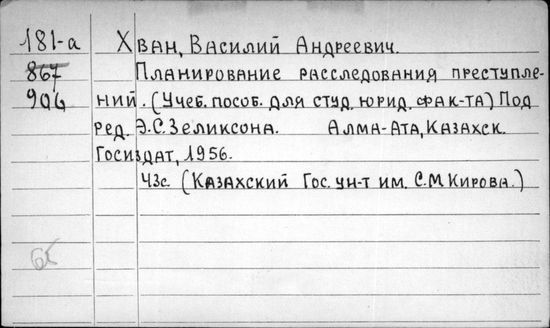 181-а Хван, Василий Андреевич.
867 Планирование расследования преступле-
904 ний. (Учеб. пособ. для студ. юрид. фак-та) Под
ред. Э.С. Зеликсона. Алма-Ата, Казахск.
Госиздат, 1956.
43с. (Казахский Гос. ун-т им. С.М Кирова.)